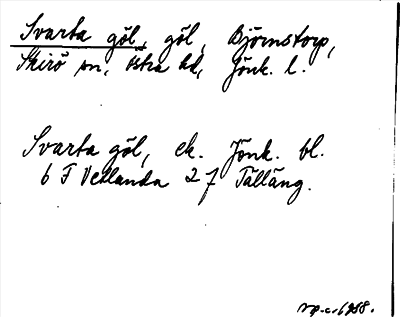 Svarta göl, göl, Björnstorp,
Skirö sn, Östra hd, Jönk. l.
Svarta göl, ek. Jönk. bl.
6 F Vetlanda 27 Tälläng.